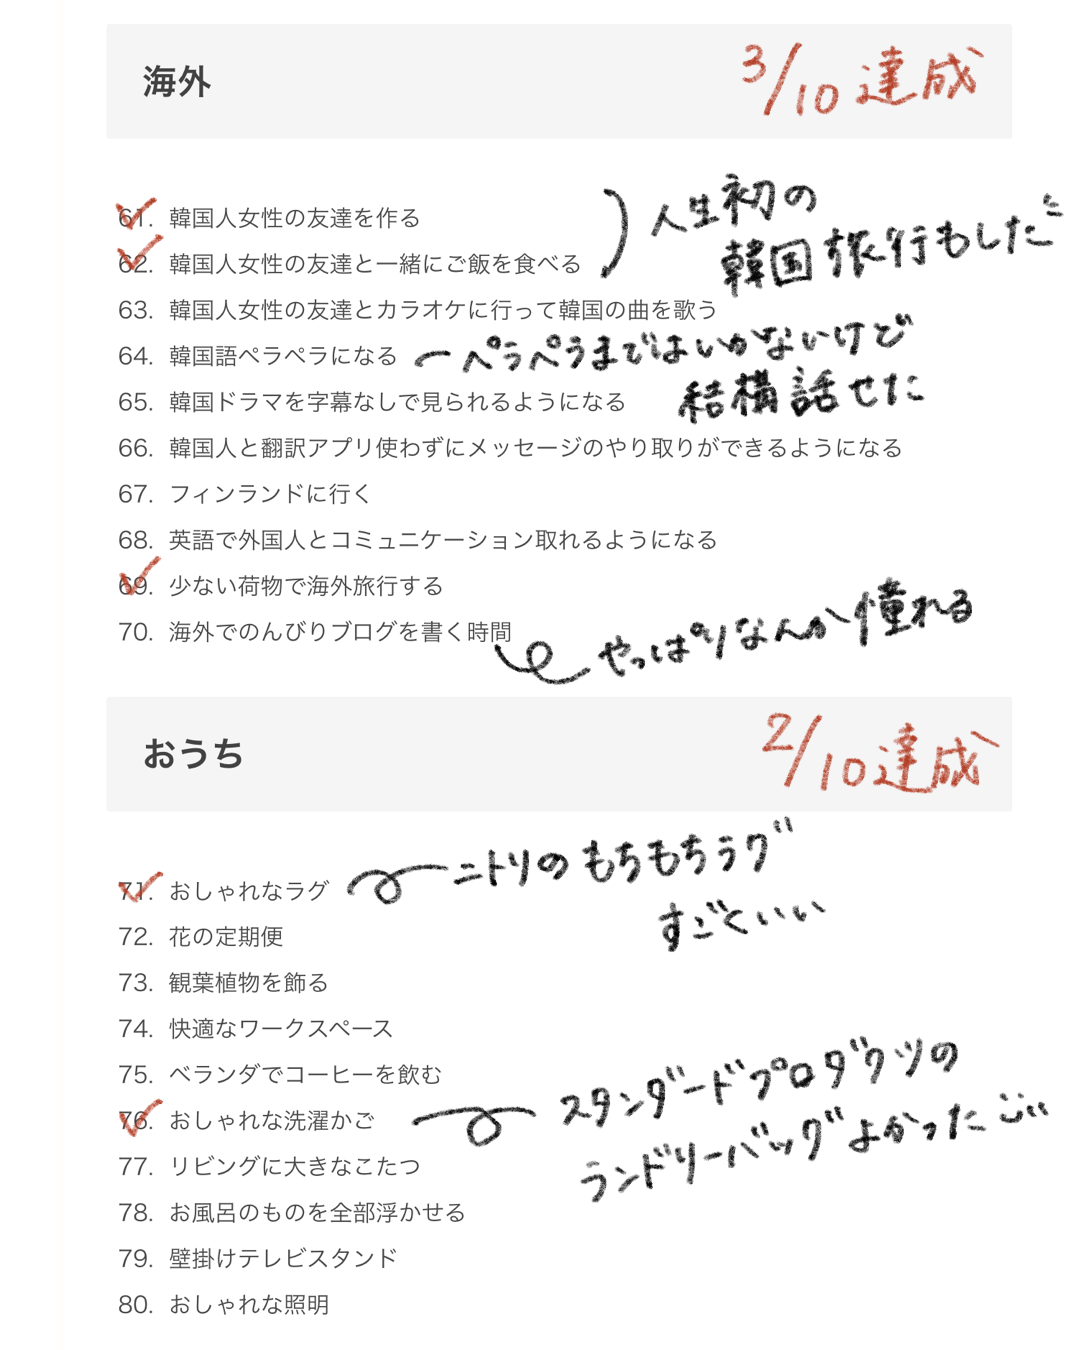 海外
3/10達成
61. 韓国人女性の友達を作る
62. 韓国人女性の友達と一緒にご飯を食べる
人生初の
韓国旅行もした
63. 韓国人女性の友達とカラオケに行って韓国の曲を歌う
64. 韓国語ペラペラになる
ペラペラまではいかないけど
結構話せた
65. 韓国ドラマを字幕なしで見られるようになる
66. 韓国人と翻訳アプリ使わずにメッセージのやり取りができるようになる
67. フィンランドに行く
68. 英語で外国人とコミュニケーション取れるようになる
69. 少ない荷物で海外旅行する
70. 海外でのんびりブログを書く時間
やっぱりなんか憧れる
おうち
2/10達成
71. おしゃれなラグ
ニトリのもちもちラグ
すごくいい
72. 花の定期便
73. 観葉植物を飾る
74. 快適なワークスペース
75. ベランダでコーヒーを飲む
76. おしゃれな洗濯かご
スタンダードプロダクツの
ランドリーバッグよかった
77. リビングに大きなこたつ
78. お風呂のものを全部浮かせる
79. 壁掛けテレビスタンド
80. おしゃれな照明